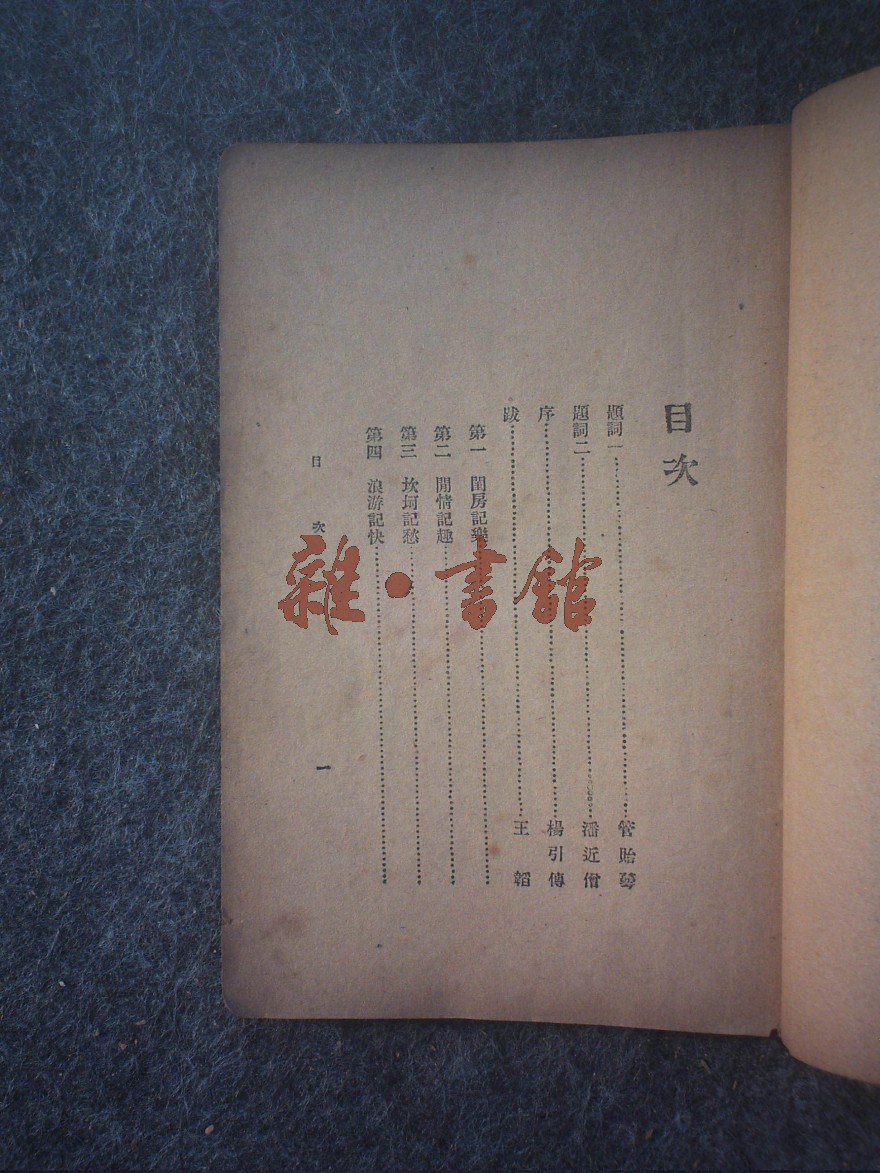 目次
題詞一 管貽葄
題詞二 潘近僧
序 楊引傳
跋 王韜
第一 閨房記樂
第二 閒情記趣
第三 坎坷記愁
第四 浪游記快
目次
一
雜·書館